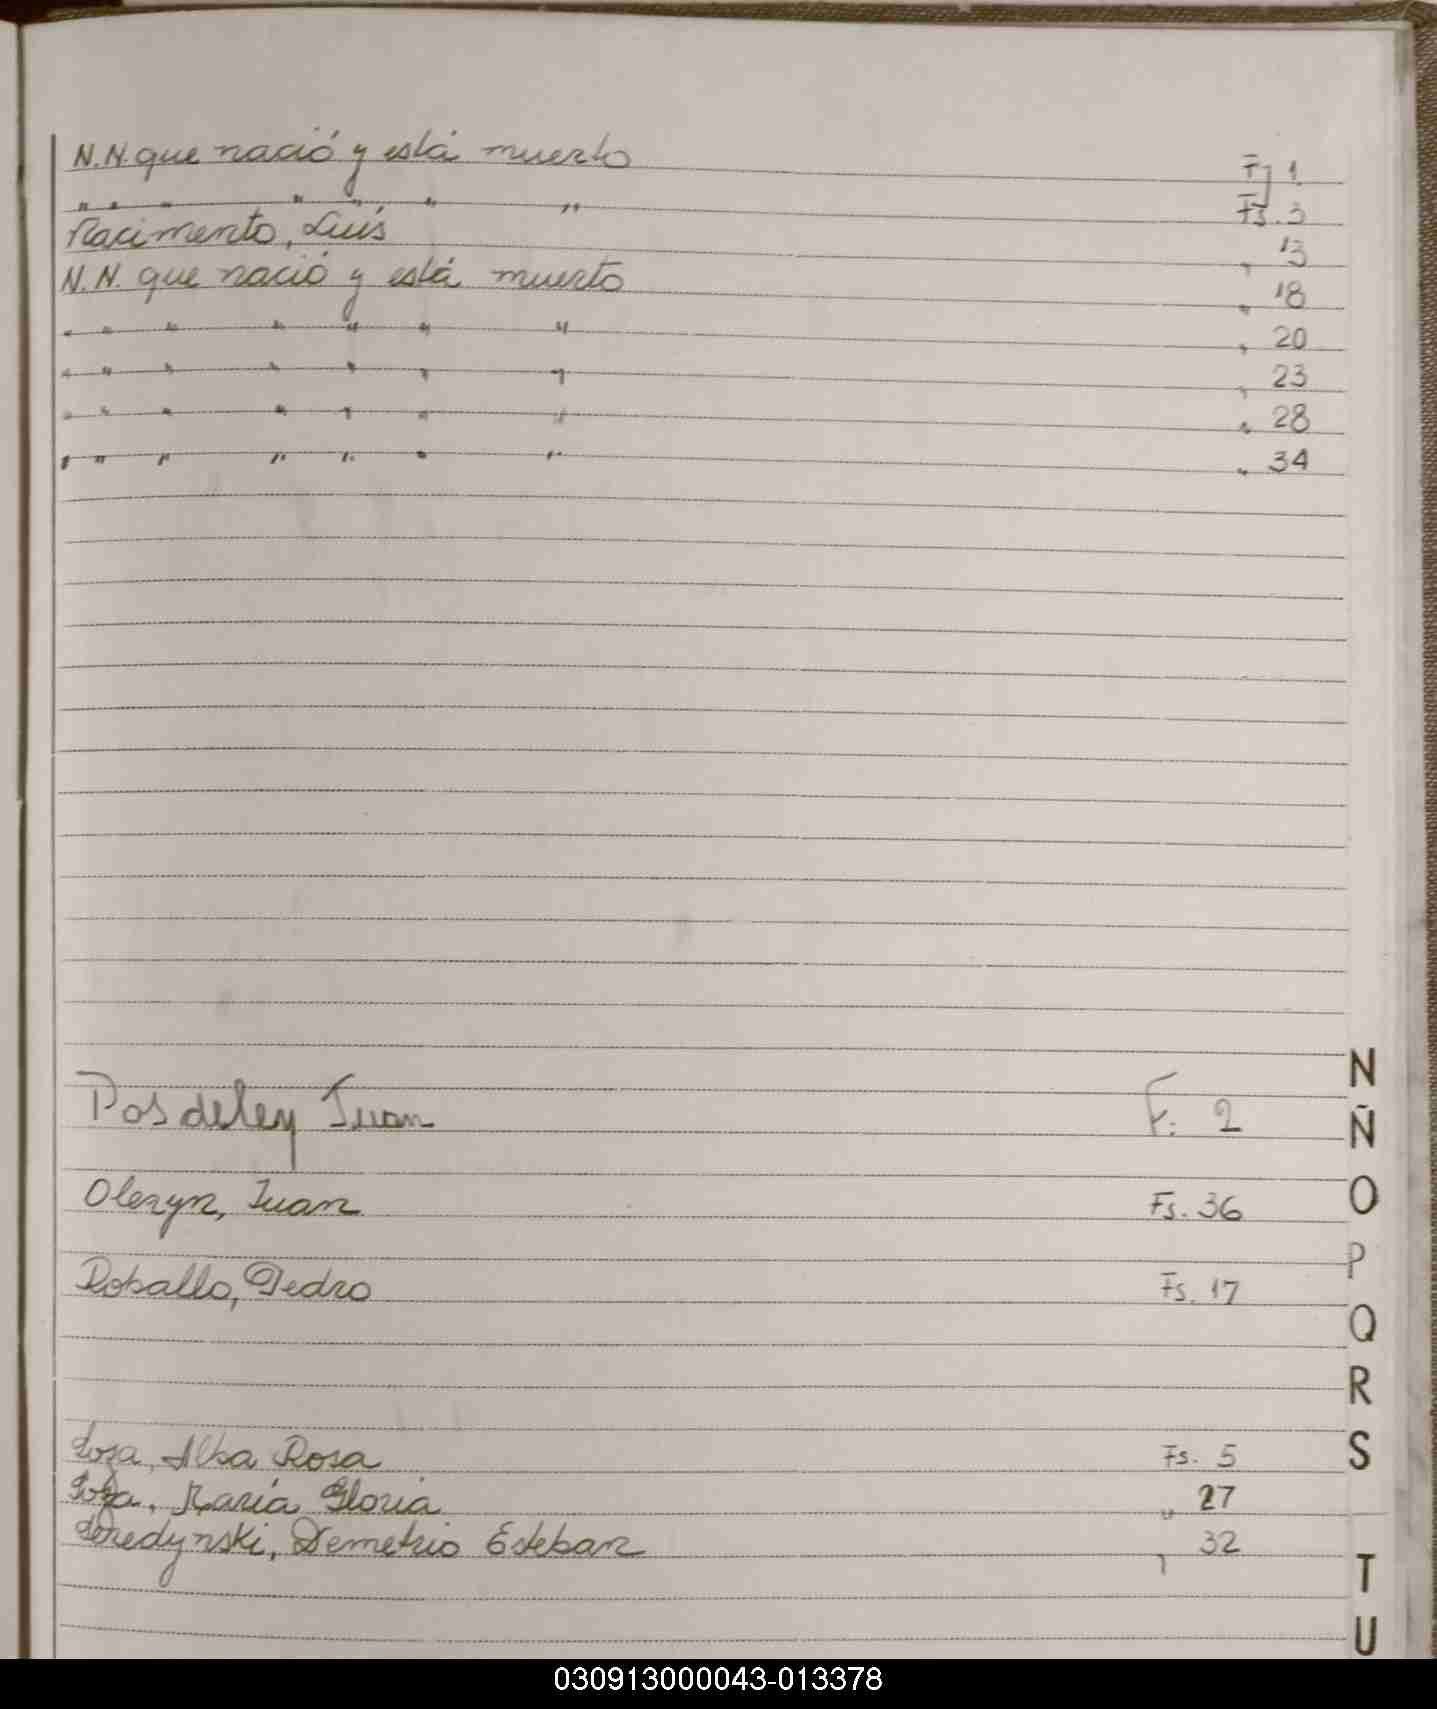 N.N. que nació y está muerto F. 1
" " " " " " " Fs. 3
Nacimento, Luis " 13
N.N. que nació y está muerto " 18
" " " " " " " " 20
" " " " " " " " 23
" " " " " " " " 28
" " " " " " " " 34
N
Posdeley Juan F. 2
Ñ
Olezyn, Juan Fs. 36
O
P
Roballo, Pedro Fs. 17
Q
R
Soza, Alba Rosa Fs. 5
S
Soza, María Gloria " 27
Demetrio Esteban " 32
T
U
030913000043-013378